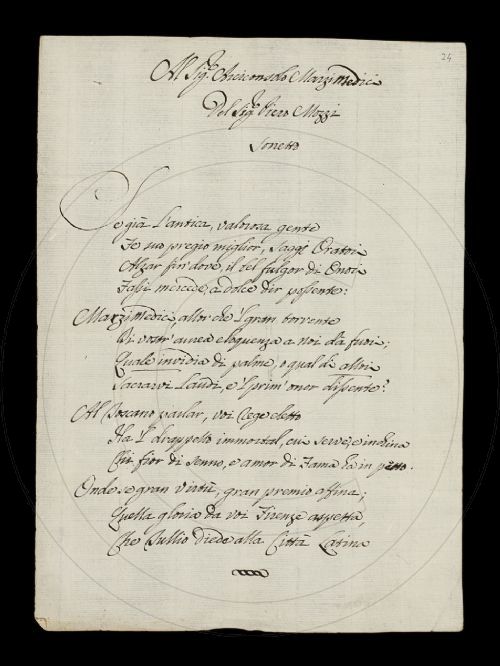 24
Al Sig.r Arciconsolo Marzimedici
Del Sig.r Piero Mozzi
Sonetto
Se già l'antica, valorosa gente
Fe suo pregio miglior, Saggi Oratori
Alzar fin dove, il bel fulgor di Onori
Fassi mercede, a dolce dir possente:
Marzimedici, allor che 'l gran torrente
Di vostr' aurea eloquenza a noi dà fuori;
Quale invidia di palme, o qual di allori
Sacrarvi Laudi, e 'l prim' onor dissente?
Al Toscano parlar, voi Rege eletto
Ha 'l drappello immortal, cui serve, e inchina
Chi fior di senno, e amor di Fama ha in petto.
Onde se gran virtù, gran premio affina;
Quella gloria da voi Firenze aspetta,
Che Tullio diede alla Città Latina